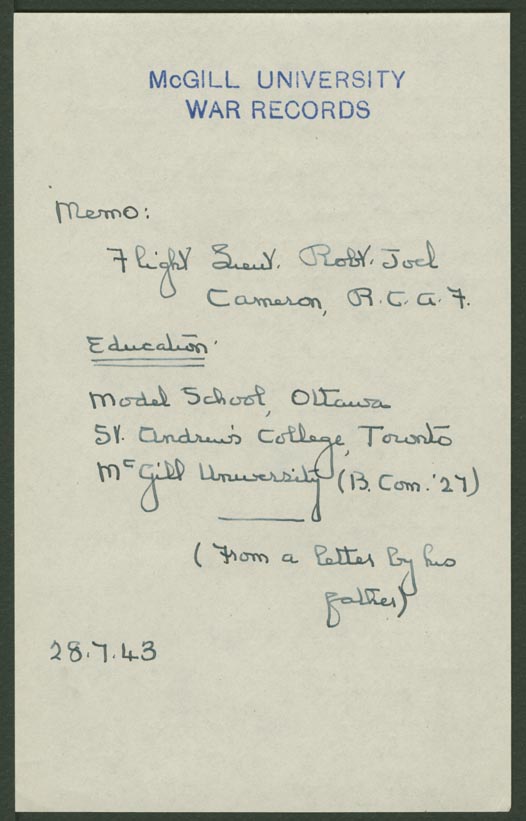 McGILL UNIVERSITY
WAR RECORDS
Memo:
Flight Lieut. Robt. Joel
Cameron, R.C.A.F.
Education.
Model School, Ottawa
St. Andrew's College, Toronto
McGill University (B. Com. '27)
(From a letter by his
father)
28.7.43